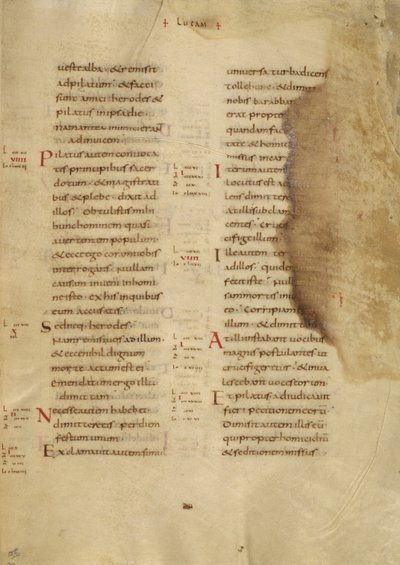 + LUCAM +
ueste alba · & remisit
ad pilatum · & facti
sunt amici herodes &
pilatus in ipsa die
nam antea inimici erant
ad inuicem
Pilatus autem conuoca
tis principibus sacer
dotum · & magistrati
bus & plebe · dixit ad
illos · Obtulistis mihi
hunc hominem quasi
auertentem populum ·
& ecce ego coram uobis
interrogans · Nullam
causam inueni in homi
ne isto · ex his in quibus
eum accusatis ·
Sed neq · herodes ·
Nam remisi uos ad illum ·
& ecce nihil dignum
morte actum est ei
Emendatum ergo illu
dimittam
Necesse autem habebat
dimittere eis per diem
festum unum
Exclamauit autem simul
uniuersa turba dicens
tolle hunc · & dimitt
nobis barabban
erat propter
quandam fac
tate & homic
missus in car
Iterum autem
locutus est ad
lens dimittere
at illi subclam
centes · Cruci
cifige illum
Ille autem ter
ad illos · quid en
fecit iste · Null
sam mortis in
eo · Corripiam
illum · & dimittam
At illi instabant uocibus
magnis postulantes ut
crucifigeretur · & inua
lescebant uoces eorum ·
Et pilatus adiudicauit
fieri petitionem eoru
Dimisit autem illis eu
qui propter homicidiu
& seditionem missus